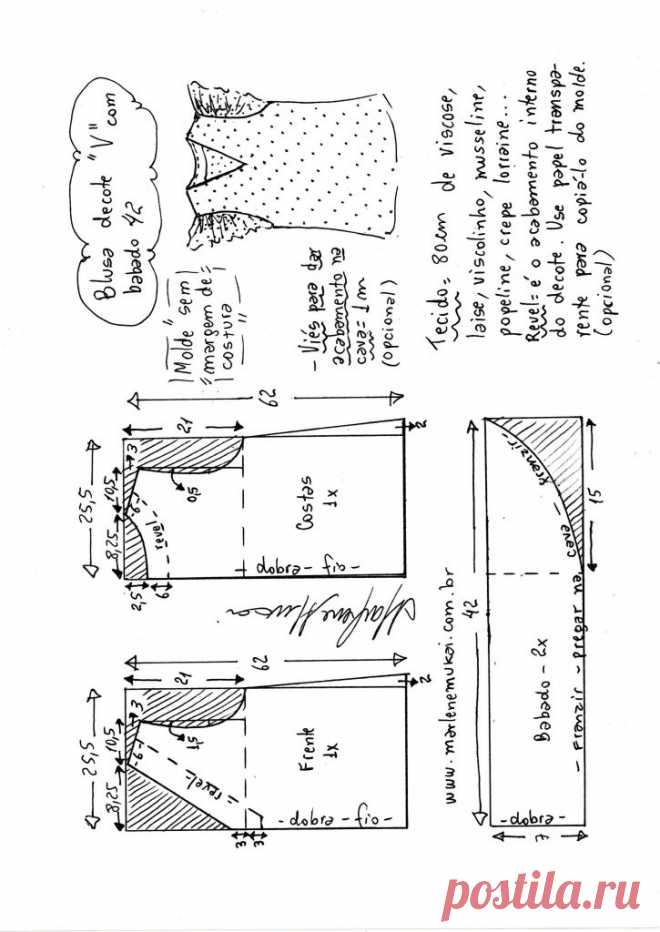 Blusa decote "V" com
babado 42
|Molde "sem|
"margem de"
|costura|
- Viés para dar
acabamento na
cava = 1m
(opcional)
Tecido = 80cm de viscose,
laise, viscolinho, musseline,
popeline, crepe lorraine...
Revel = é o acabamento interno
do decote. Use papel transpa-
rente para copiá-lo do molde.
(opcional)
62
21
25,5
10,5
3
8,25
-6-
revel
0,5
2,5
6
Costas
1x
-dobra - fio-
2
Marlene Mukai
62
21
25,5
10,5
3
8,25
-6-
1,5
- revel -
3
3
Frente
1x
-dobra - fio -
2
www.marlenemukai.com.br
42
15
7
franzir-
Babado - 2x
- Franzir - pregar na cava -
-dobra-
postila.ru